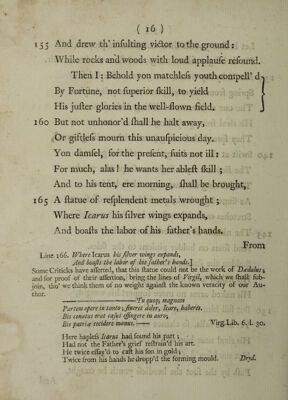 ( 16 )
155 And drew th' insulting victor to the ground:
While rocks and woods with loud applause resound.
Then I: Behold yon matchless youth compell'd
By Fortune, not superior skill, to yield
His juster glories in the well-flown field.
160 But not unhonor'd shall he halt away,
Or giftless mourn this unauspicious day.
Yon damsel, for the present, suits not ill:
For much, alas! he wants her ablest skill;
And to his tent, ere morning, shall be brought,
165 A statue of resplendent metals wrought;
Where Icarus his silver wings expands,
And boasts the labor of his father's hands.
From
Line 166. Where Icarus his silver wings expands,
And boasts the labor of his father's hands.]
Some Criticks have asserted, that this statue could not be the work of Dædalus;
and for proof of their assertion, bring the lines of Virgil, which we shall sub-
join, tho' we think them of no weight against the known veracity of our Au-
thor.
Tu quoq; magnam
Partem opere in tanto, sineret dolor, Icare, haberes.
Bis conatus erat casus effingere in auro;
Bis patriæ cecidere manus. Virg. Lib. 6. l. 30.
Here hapless Icarus had found his part;
Had not the Father's grief restrain'd his art.
He twice essay'd to cast his son in gold;
Twice from his hands he dropp'd the forming mould. Dryd.